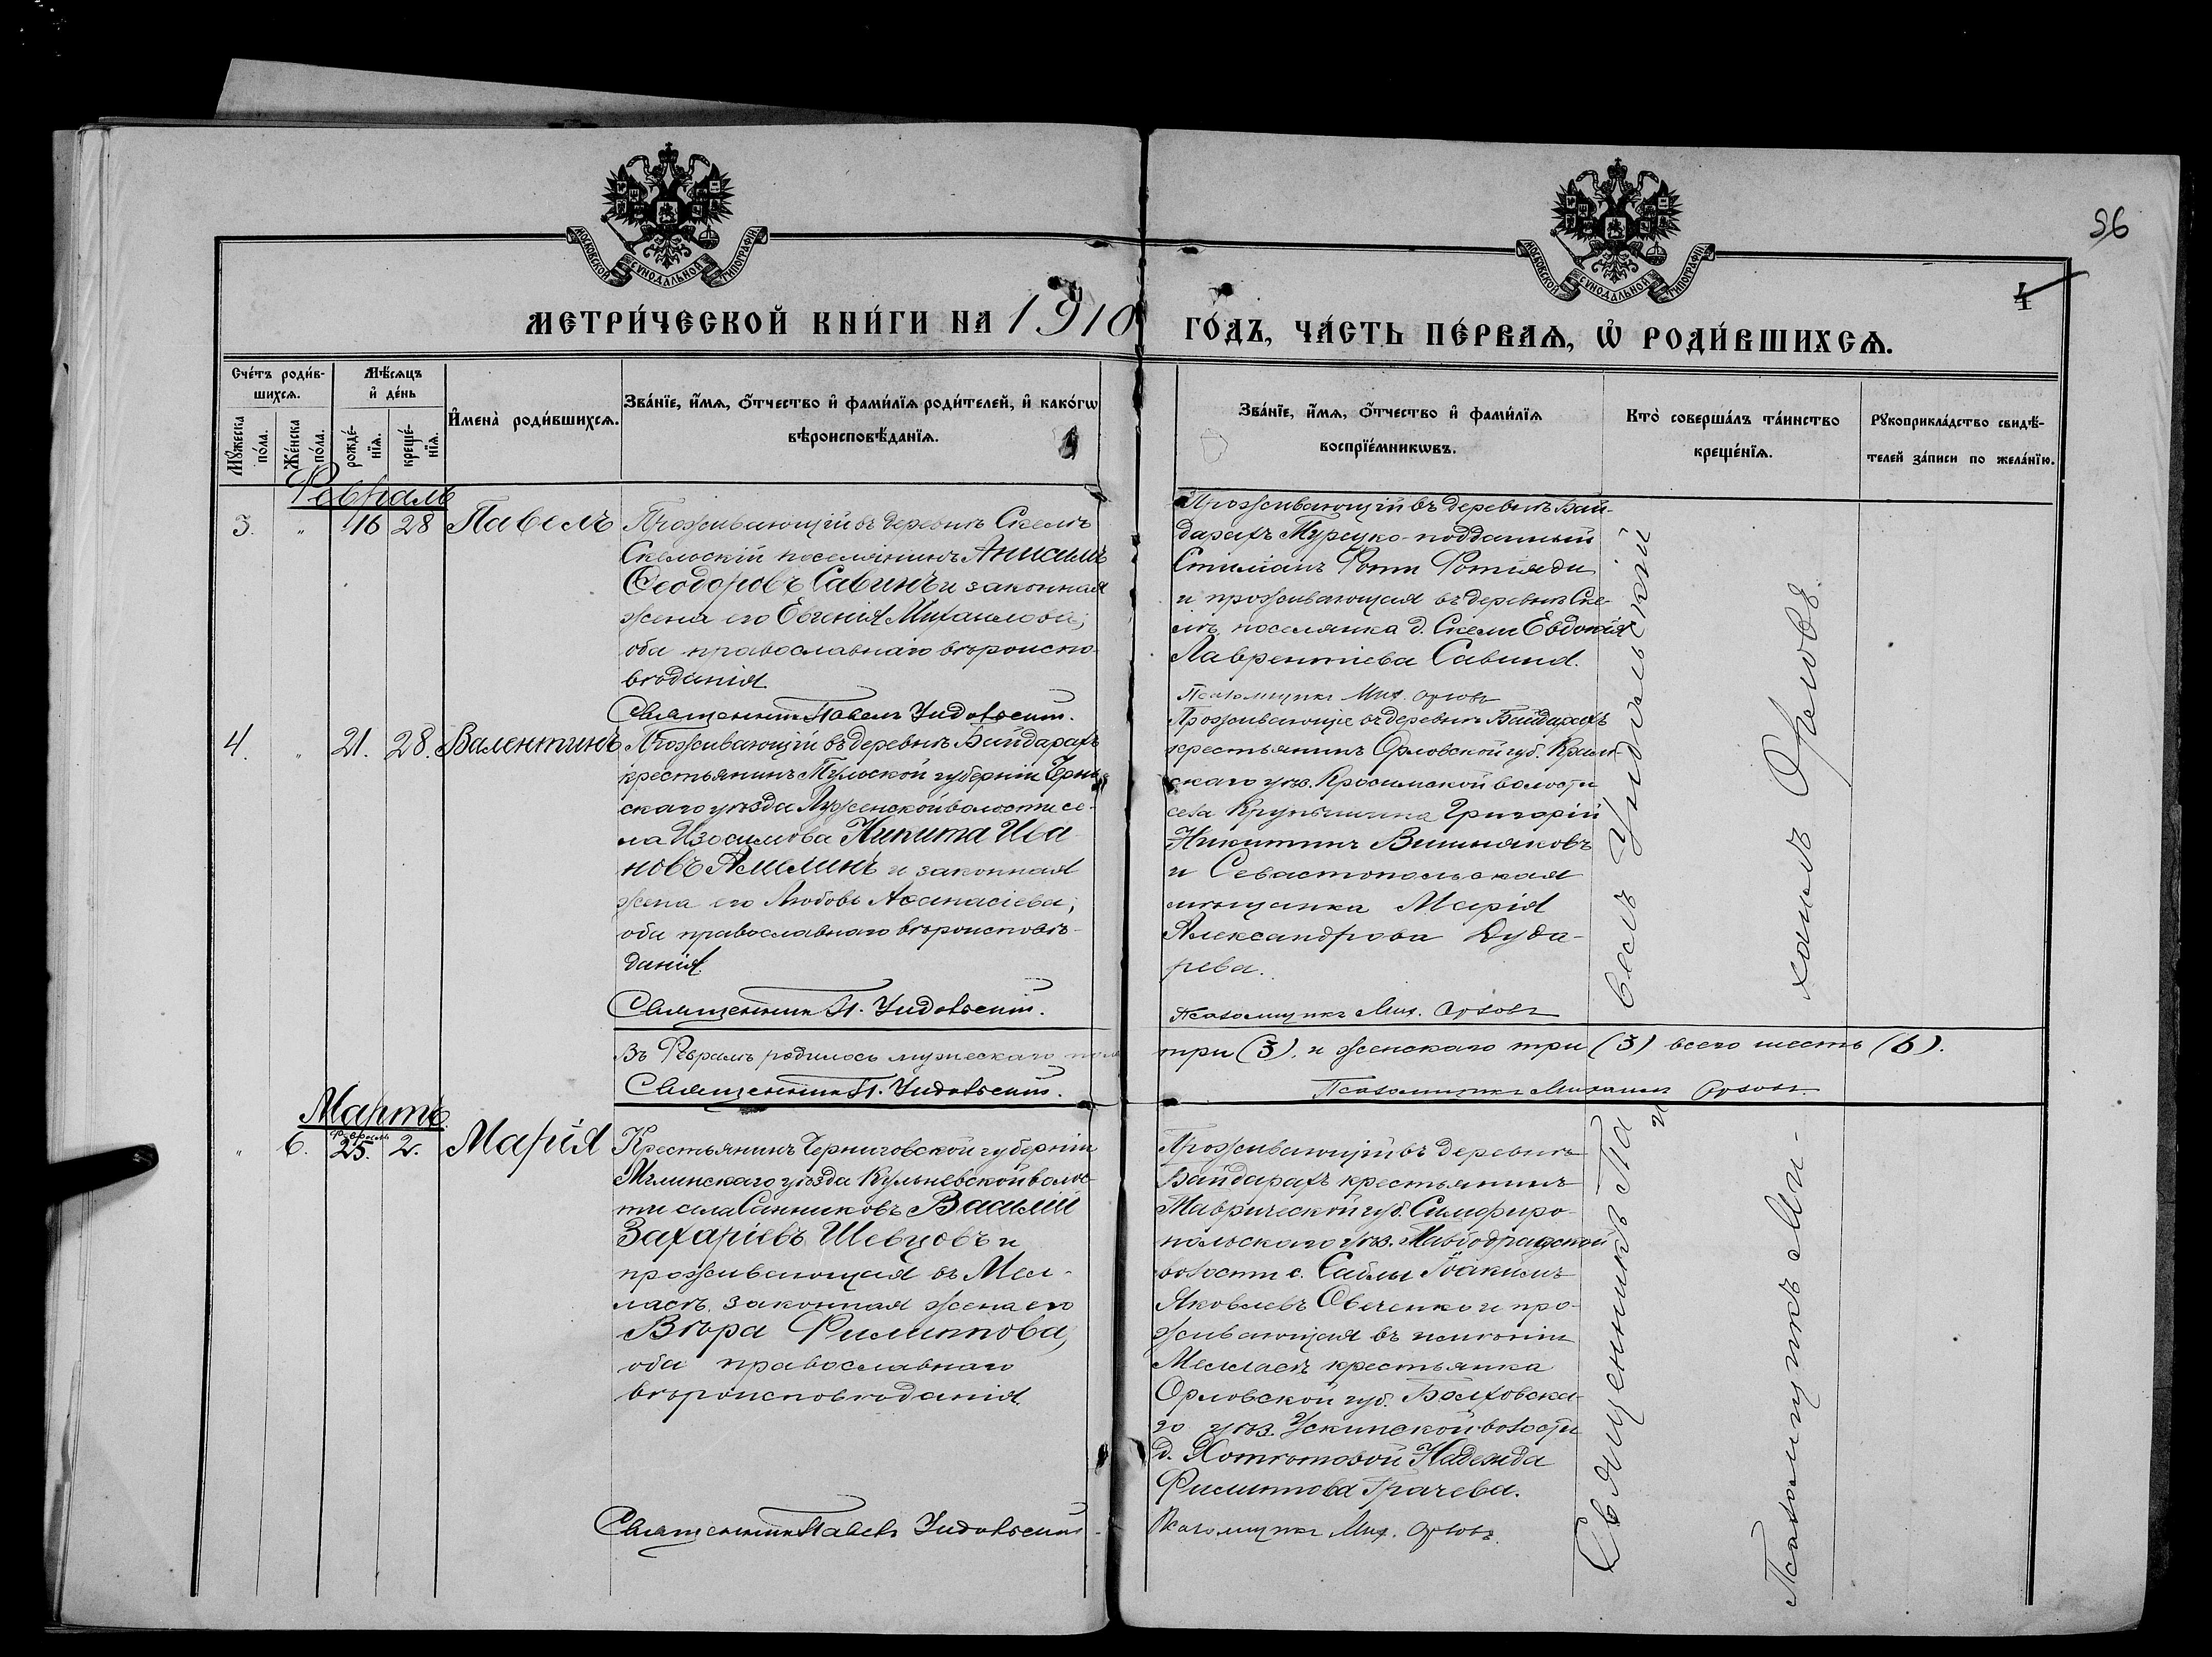 96
4
МОСКОВСКОЙ СѴНОДАЛЬНОЙ ТИПОГРАФІИ
МОСКОВСКОЙ СѴНОДАЛЬНОЙ ТИПОГРАФІИ
МЕТРИ́ЧЕСКОЙ КНИ́ГИ НА 1910 ГО́ДЪ, ЧА́СТЬ ПЕ́РВАѦ, Ѡ҆ РОДИ́ВШИХСѦ.
Сче́тъ роди́в-
шихсѧ.
Мꙋ́жеска по́ла.
Же́нска по́ла.
Мѣ́сѧцъ
и҆ де́нь
рожде́-
нїѧ.
креще́-
нїѧ.
И҆мена̀ роди́вшихсѧ.
Зва́нїе, и҆́мѧ, ѻ҆́тчество и҆ фами́лїѧ роди́телей, и҆ како́гѡ
вѣроисповѣ́данїѧ.
Зва́нїе, и҆́мѧ, ѻ҆́тчество и҆ фами́лїѧ
воспрїе́мникѡвъ.
Кто̀ соверша́лъ та́инство
креще́нїѧ.
Рꙋкоприкла́дство свидѣ́-
телей за́писи по жела́нїю.
Февраль
3. " 16 28 Павелъ
Проживающій въ деревнѣ Скелѣ
Скельскій поселянинъ
Ѳеодоровъ Савинъ и законная
жена его Евгенія Михаилова;
оба православнаго вѣроиспо-
вѣданія.
Священникъ Павелъ Чидовскій.
Проживающій въ деревнѣ Бай-
дарахъ Турецко-подданный
Стиліанъ Фоти Фотіяди
и проживающая въ деревнѣ Ске-
лѣ, поселянка д. Скели Евдокія
Лаврентіева Савина.
Псаломщикъ Мих. Орловъ
4. " 21. 28. Валентинъ
Проживающій въ деревнѣ Байдарахъ
крестьянинъ Тульской губерніи Черн-
скаго уѣзда волости се-
ла Изосимова Никита Ива
новъ Амелинъ и законная
жена его Любовь Аѳанасіева;
оба православнаго вѣроисповѣ-
данія.
Священникъ П. Чидовскій.
Проживающіе въ деревнѣ Байдарахъ
крестьянинъ Орловской губ.
скаго уѣз. волости
села Григорій
Никитинъ Вишняковъ
и Севастопольская
мѣщанка Марія
Александрова Дуда-
рева.
Псаломщикъ Мих. Орловъ
Въ Февралѣ родилось мужескаго пола три (3). и женскаго три (3) всего шесть (6).
Священникъ П. Чидовскій. Псаломщикъ Михаилъ Орловъ.
Мартъ
" 6. Февраль 25. 2. Марія
Крестьянинъ Черниговской губерніи
Мглинскаго уѣзда Кульневской волос-
ти села Санниковъ Василій
Захаріевъ Шевцовъ и
проживающая въ Мел-
ласѣ законная жена его
Вѣра Филиппова,
оба православнаго
вѣроисповѣданія.
Священникъ Павелъ Чидовскій.
Проживающій въ деревнѣ
Байдарахъ крестьянинъ
Таврической губ. Симферо-
польскаго уѣз.
волости с. Саблы Іоакимъ
Яковлевъ Овченко и про-
живающая въ имѣніи
Мелласъ крестьянка
Орловской губ. Болховска-
го уѣз. волости
д. Хотѣтовой Надежда
Филиппова Грачева.
Псаломщикъ Мих. Орловъ.
Священникъ Павелъ Чидовскій
и
Псаломщикъ Михаилъ Орловъ